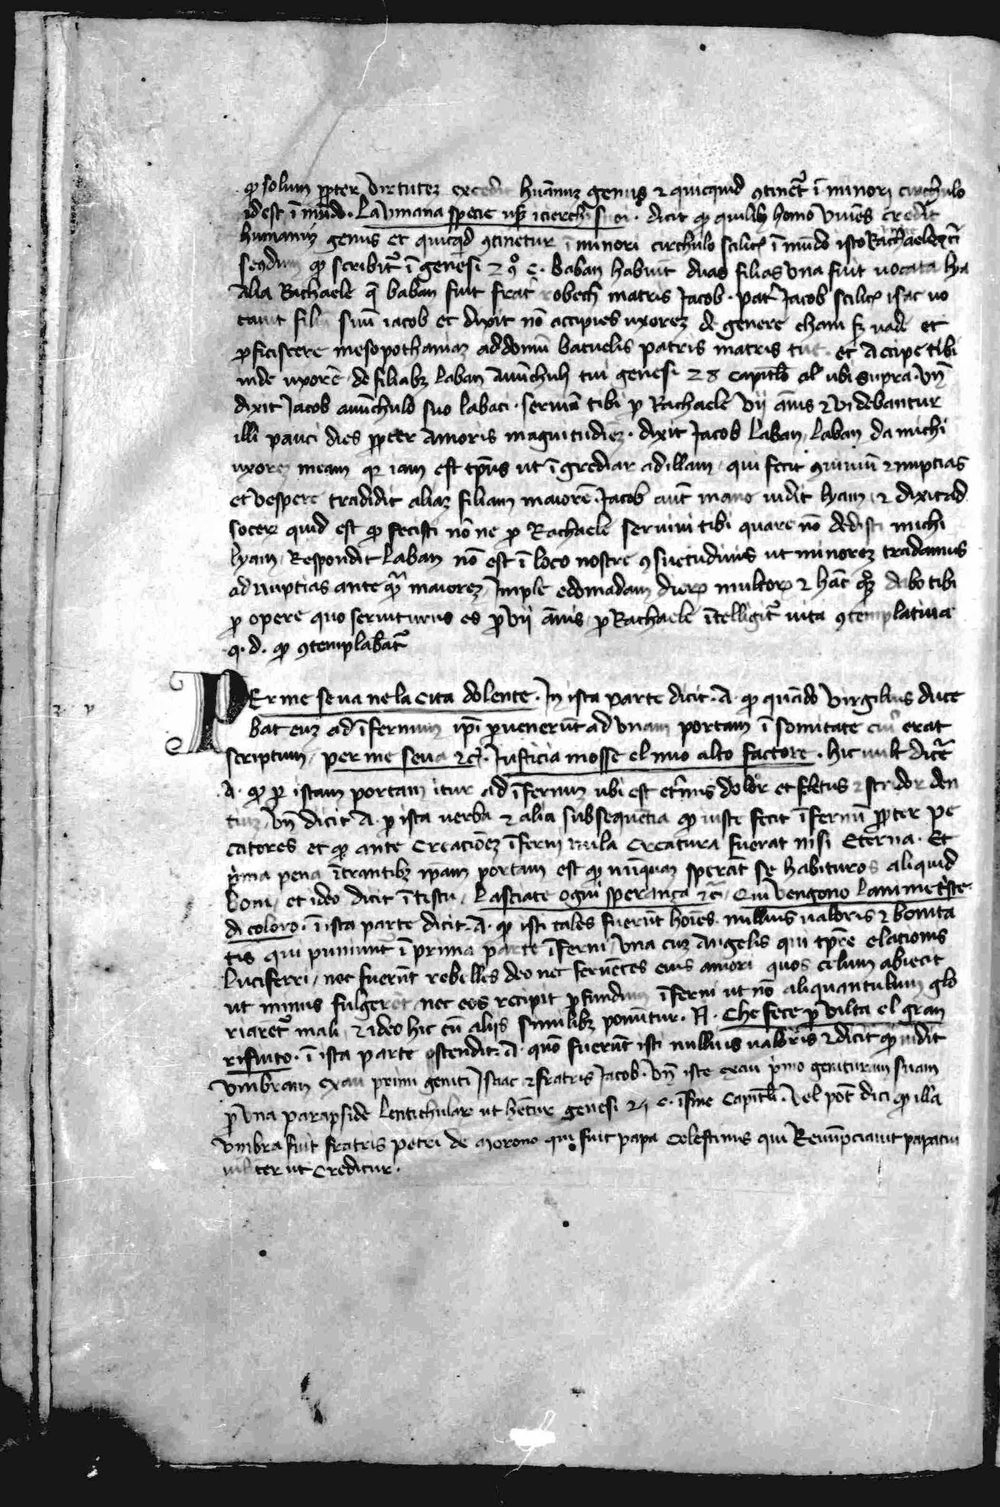 qͥ solum ꝓpter virtutez excedit humanuz genus ⁊ quicquid ꝯtinet᷑ ī minori circhulo
idest ī mūdo. La vmana specie dicit ꝙ quilibꝫ homo viuēs credit
humanuz genus et quicqͥd ꝯtinetur ī minori circhulo scilicꝫ ī mūdo isto Rachaele
ꝙ scribit᷑ ī genesi ⁊ 9 c. baban habuit duas filias vna fuit uocata lya
Alia Rachaele q̄ baban fuit frat᷑ matris Jacob. pat᷑ Jacob scilicꝫ isac uo
cauit filiu suū iacob et dixit nō accipies uxorez de genere cham sꝫ uade et
ꝓficiscere mesopothamiaz ad domū batuelis patris matris tue. et Accipe tibi
inde uxorē de filiabꝫ laban Auūchuli tui genesi 28 capitlo al ubi supra vn̄
dixit Jacob auūchulo suo labaci. seruiā tibi ꝓ Rachaele vij ānis ⁊ videbantur
illi pauci dies ꝓpter Amoris magnitudiez. dixit Jacob laban, laban da michi
uxorez meam qꝛ iam est tp̄us ut īgrediar ad illam, qui fecit ꝯuiuiū ⁊ nuptias
et vespere tradidit aliaz filiam maiorē. Jacob aut̄ mane uidit lyam, ⁊ dixit ad
socerz quid est ꝙ fecisti nōne ꝓ Rachaele seruiui tibi quare nō dedisti michi
lyam, Respondit laban nō est ī loco nostre ꝯsuetudinis ut minorez tradamus
ad nuptias ante qͣ maiorez, Imple edomadam dierꝝ ⁊ hāc qꝫ dabo tibi
ꝓ opere quo seruiturus es ꝓ vij ānis, ꝓ Rachaele ītelligit᷑ uita ꝯtemplatiua
.q. d. ꝙ ꝯtemplabat᷑
PEr me se ua ne la cita dolente. In ista parte dicit. A. ꝙ quādo virgilius duce
bat euz ad īfernum ip̄i ꝑuenerūt ad vnam portam ī somitate cui᷑ erat
scriptum, per me se ua ⁊c̄. Justicia mosse el mio alto factore. hic uult dicē
.A. ꝙ ꝑ istam portam itur ad īfernum ubi est et᷑nus dolor et fletus ⁊ stridor den
tiuz vn̄ dicit A. ꝑ ista uerba ⁊ alia subsequētia ꝙ iuste fecit īfernū ꝓpter pe
catores et ꝙ ante Creationez īferni nula Creatura fuerat nisi Eterna. Et
p̄ma pena ītrantibꝫ ip̄am portam est ꝙ nūquam sperāt se habituros aliquid
boni, et ideo dicit ī testu, lasciate ogni sperança ⁊c̄, Qui vengono lanime triste
di coloro. ī ista parte dicit. A. ꝙ isti tales fuerūt hoīes nullius ualoris ⁊ bonita
tis qui puniunt ī prima parte īferni, vna cuz Angelis qui tp̄re elationis
luciferri, nec fuerūt rebelles deo nec feruētes eius amori quos celum abiecit
ut minus fulgeret nec eos recipit ꝓfundum īferni ut nō aliquantulum glo
riaret᷑ mali, ⁊ ideo hic cū alijs similibꝫ ponūtur. N. Che fece ꝑ vilta el gran
rifiuto. ī ista parte ostendit. A. quō fuerūt isti nullius ualoris ⁊ dicit ꝙ uidit
vmbram exau primi geniti Isaac ⁊ fratris Jacob. vn̄ iste exau p̄mo genituram suam
ꝓ vna parapside lentichulaꝝ ut hētur genesi c. īfine capitli. vel pōt dici ꝙ illa
vmbra fuit fratris petri de morono qui fuit papa Celestinus qui Renūpciauit papatui
uiliter ut creditur.